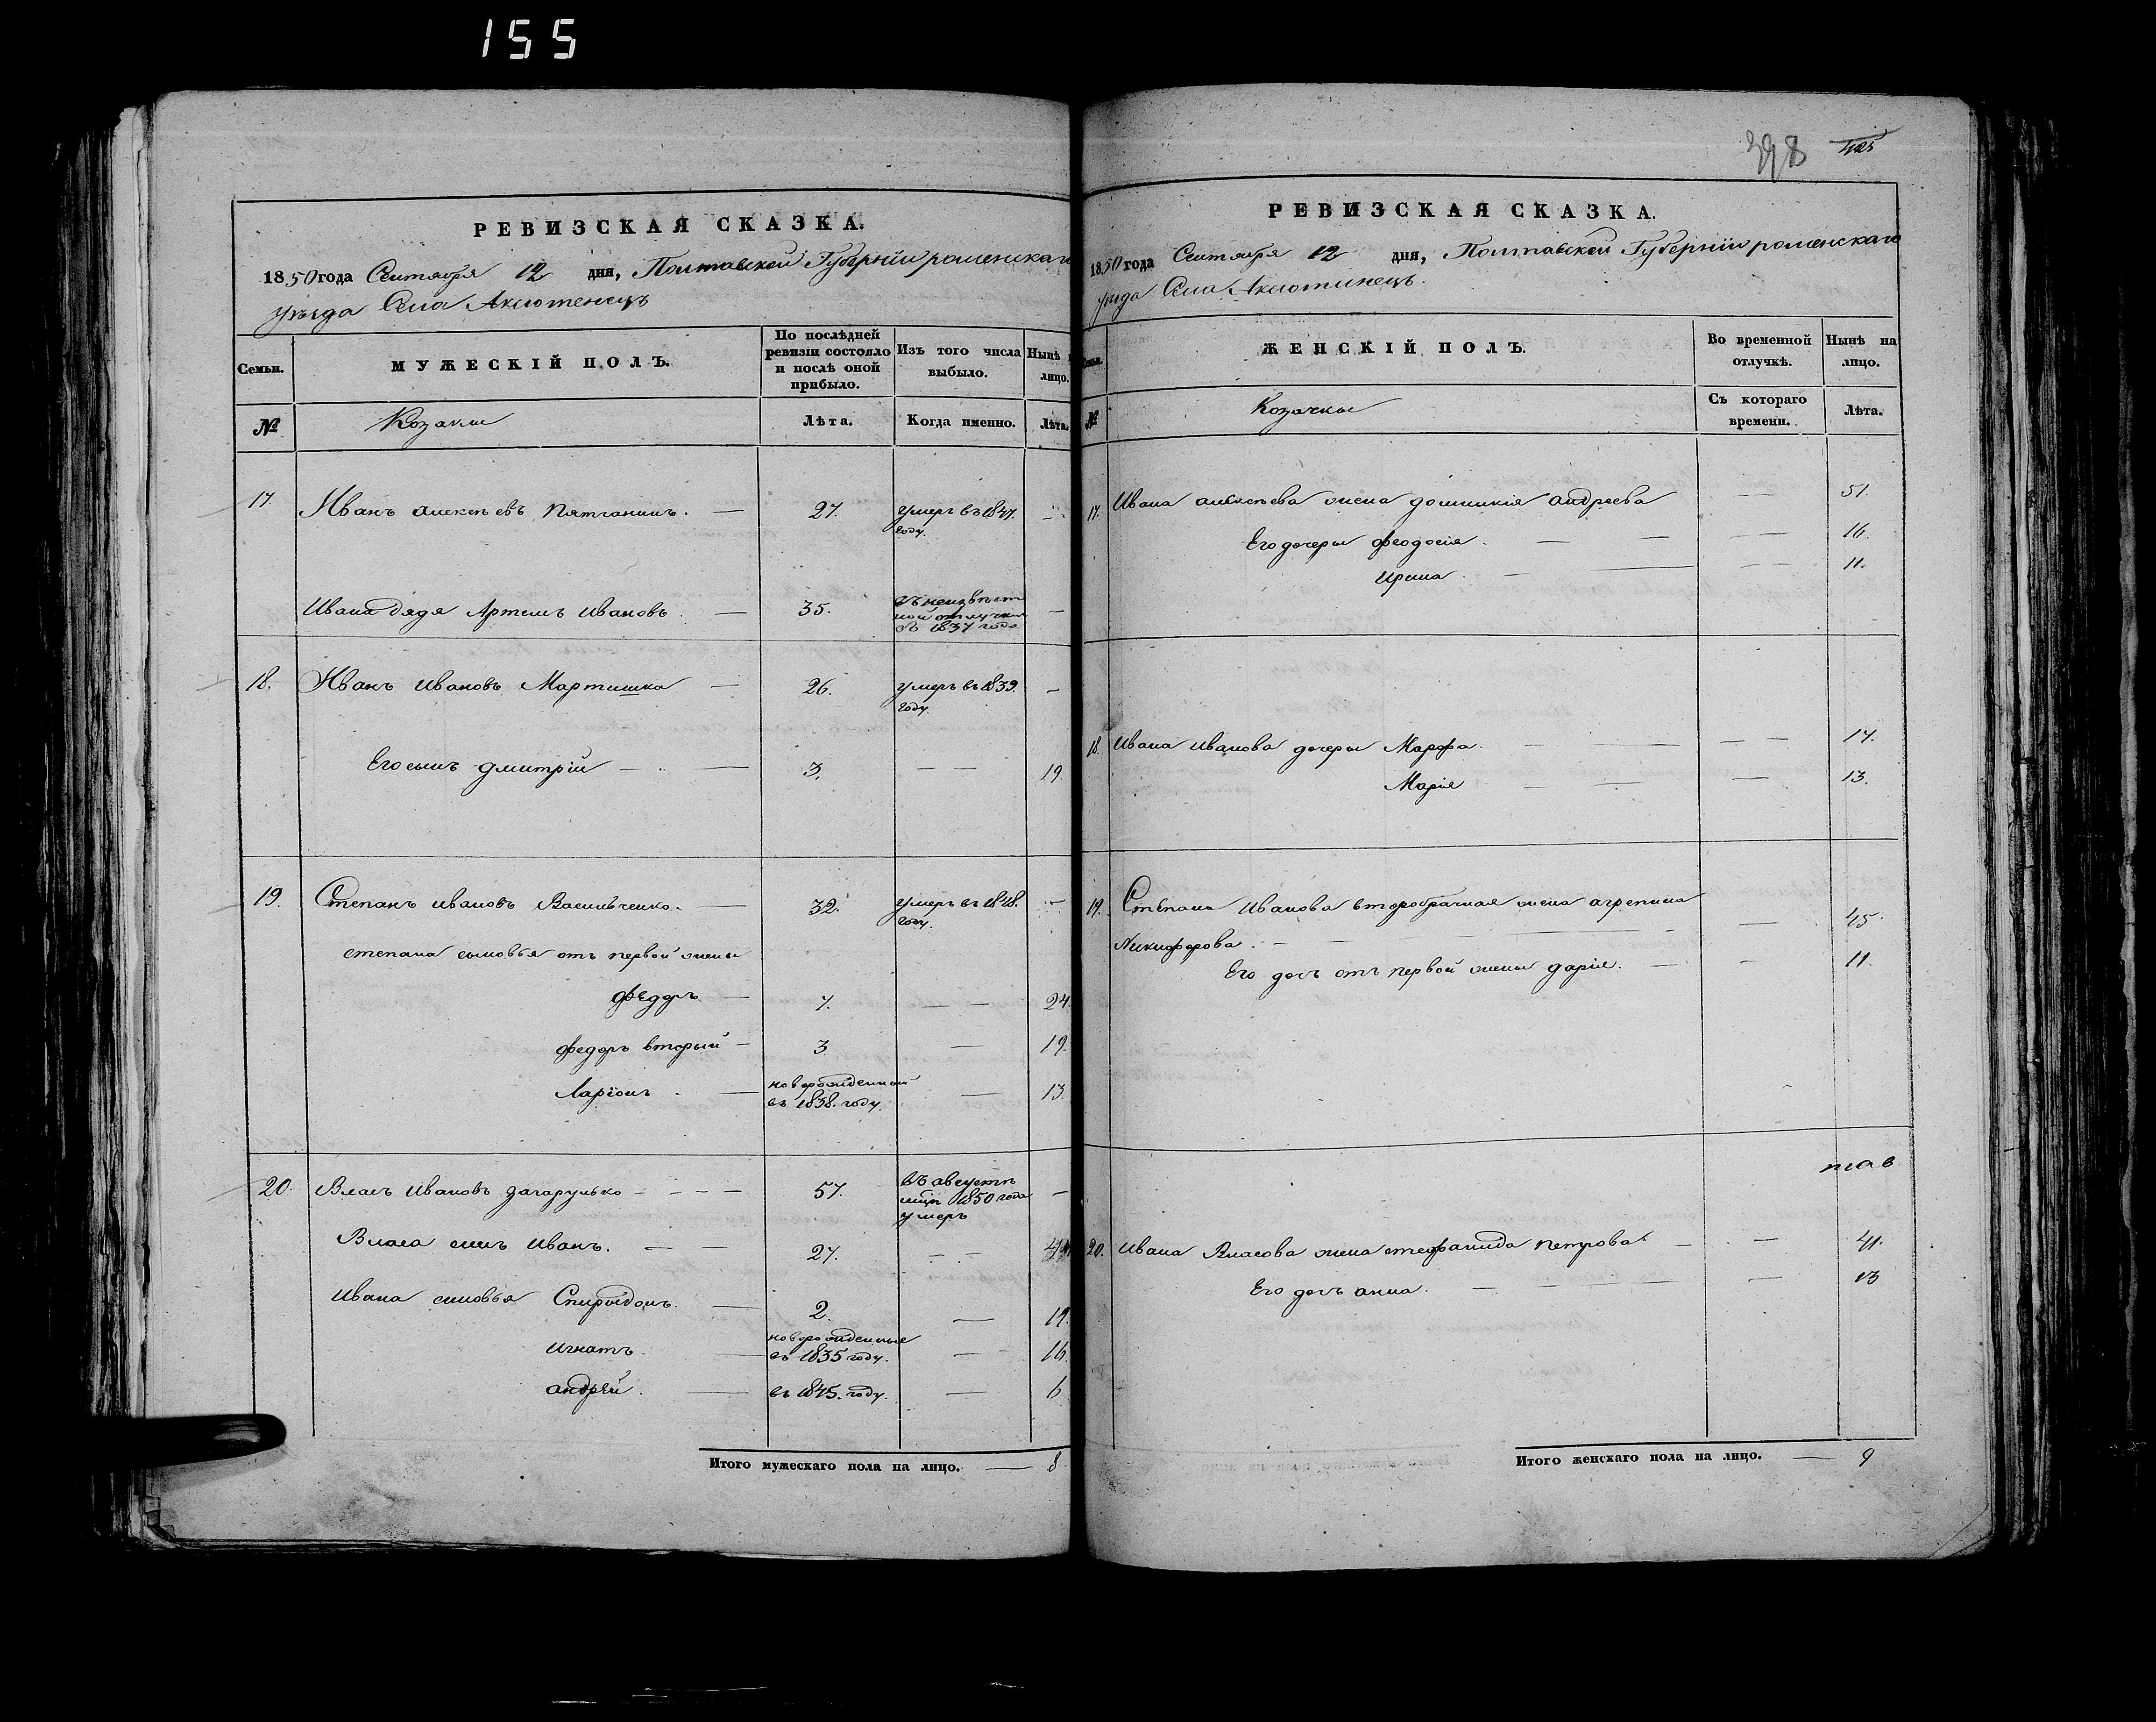 155
398 425
РЕВИЗСКАЯ СКАЗКА.
1850 года Сентября 12 дня, Полтавской Губерніи роменскаго
уѣзда Села Аксютенецъ
Семьи. МУЖЕСКІЙ ПОЛЪ. По послѣдней ревизіи состояло и послѣ оной прибыло. Изъ того числа выбыло. Нынѣ на лицо.
№ Козаки Лѣта. Когда именно. Лѣта.
17 Иванъ алексѣевъ Пятчанинъ. — 27. умеръ въ 1847. году. —
Ивана дядя Артемъ Ивановъ. — 35. въ неизвѣстной отлучки съ 1837 года —
18. Иванъ Ивановъ Мартишка — 26. умеръ въ 1839. году. —
Его сынъ дмитрій — — 3. — — 19.
19. Степанъ ивановъ Васильченко. — 32. умеръ въ 1848. году. —
степана сыновья отъ первой жены
федоръ — 7. — — 24.
федоръ вторый — 3 — 19.
Ларіонъ. — новорожденный въ 1838. году. — 13.
20. Власъ Ивановъ дагарулько — — — — 57. въ августѣ мцѣ 1850 года умеръ —
Власа сынъ Иванъ. — — 27. — — 44
Ивана сыновья Спиридонъ. — 2. — 19.
игнатъ. — новорожденные въ 1835 году. — 16.
андрей. — въ 1845. году. — 6
Итого мужескаго пола на лицо. — 8
РЕВИЗСКАЯ СКАЗКА.
1850 года Сентября 12 дня, Полтавской Губерніи роменскаго
уѣзда Села Аксютинецъ.
Семьи. ЖЕНСКІЙ ПОЛЪ. Во временной отлучкѣ. Нынѣ на лицо.
№ Козачки Съ котораго времени. Лѣта.
17. Ивана алексѣева жена домникія андреева — — 51.
Его дочеры феодосія. — — — — 16.
Ирина. — — — — 11.
18. Ивана Иванова дочеры Марфа. — — — — 17.
Марія — — — 13.
19. Степана Иванова второбрачная жена агрепина
Никифорова. — — — — 45.
Его дочь отъ первой жены дарія. — — 11.
20. Ивана Власова жена стефанида петрова. — — — 41.
Его дочь анна. — — — — — 13
Итого женскаго пола на лицо. — 9